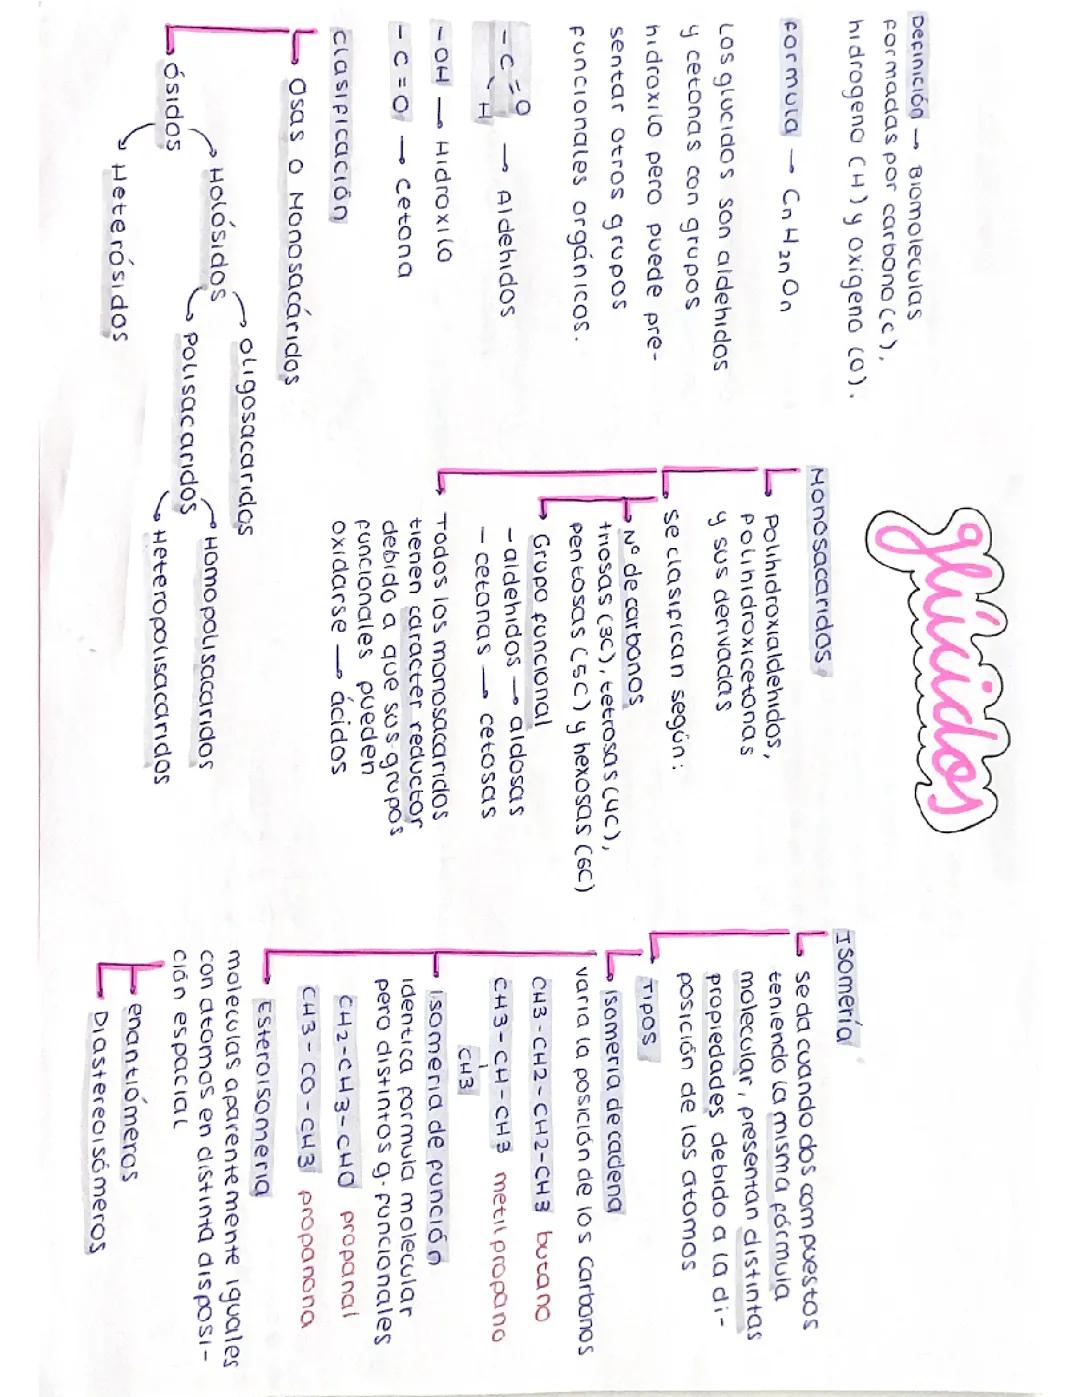 glúcidos
Definición → Biomoleculas
formadas por carbono (c),
hidrogeno (H) y oxigeno (O).
formula → Cn H2n On
Los glucidos son aldehidos
y cetonas con grupos
hidroxilo pero puede pre-
sentar otros grupos
funcionales orgánicos.
- C =O
H → Aldehidos
- OH → Hidroxilo
- C = O → cetona
clasificación
Osas o Monosacáridos
Ósidos
Holósidos
Oligosacaridos
Polisacaridos
Homopolisacaridos
Heteropolisacaridos
Heterósidos
Monosacaridos
Polihidroxialdehidos,
Polihidroxicetonas
y sus derivadas
se clasifican según:
Nº de carbonos
triosas (3C), tetrosas (4C),
pentosas (5C) y hexosas (6C)
Grupo funcional
- aldehidos → aldosas
- cetonas → cetosas
Todos los monosacaridos
tienen caracter reductor
debido a que sus grupos
funcionales pueden
oxidarse → ácidos
Isomería
se da cuando dos compuestos
teniendo la misma fórmula
molecular, presentan distintas
propiedades debido a la di-
posición de los atomos
Tipos
isomeria de cadena
varia la posición de los carbonos
CH3 - CH2 - CH2 - CH3 butano
CH3 - CH - CH3 metil propano
CH3
isomeria de función
identica formula molecular
pero distintos g. funcionales
CH2 - CH3 - CHO propanal
CH3 - CO - CH3 propanona
Esteroisomeria
moleculas aparentemente iguales
con atomos en distinta disposi-
ción espacial
enantiómeros
Diastereoisómeros